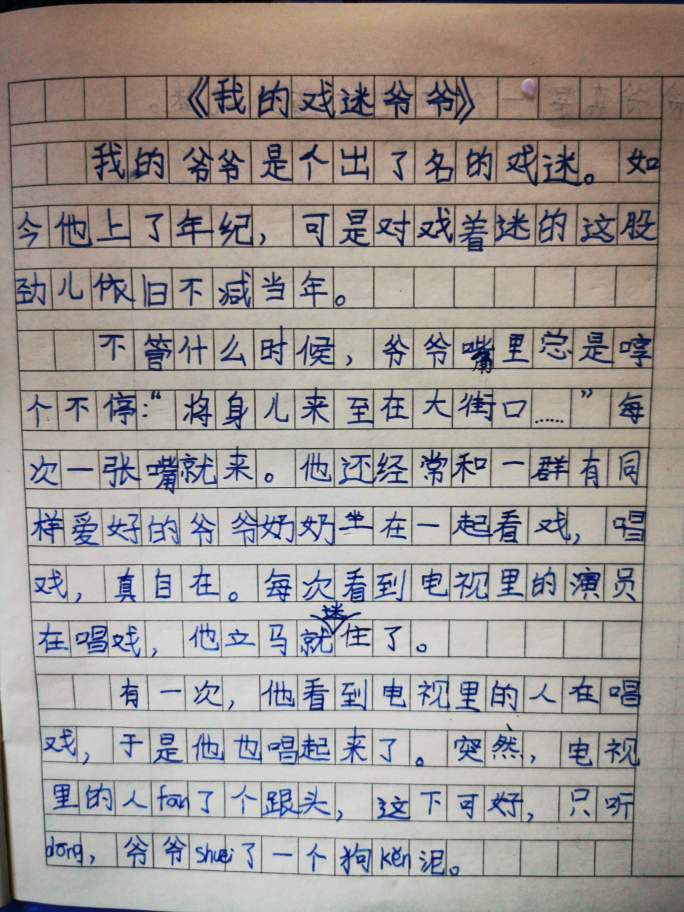 《我的戏迷爷爷》
我的爷爷是个出了名的戏迷。如
今他上了年纪，可是对戏着迷的这股
劲儿依旧不减当年。
不管什么时候，爷爷嘴里总是哼
个不停：“将身儿来至在大街口……”每
次一张嘴就来。他还经常和一群有同
样爱好的爷爷奶奶坐在一起看戏，唱
戏，真自在。每次看到电视里的演员
在唱戏，他立马就迷住了。
有一次，他看到电视里的人在唱
戏，于是他也唱起来了。突然，电视
里的人fan了个跟头，这下可好，只听
dōng，爷爷shuāi了一个狗kěn泥。